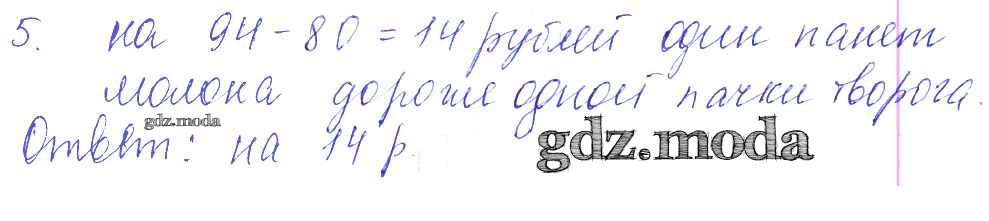 5. на 94 - 80 = 14 рублей один пакет
молока дороже одной пачки творога.
gdz.moda
Ответ: на 14 р.
gdz.moda